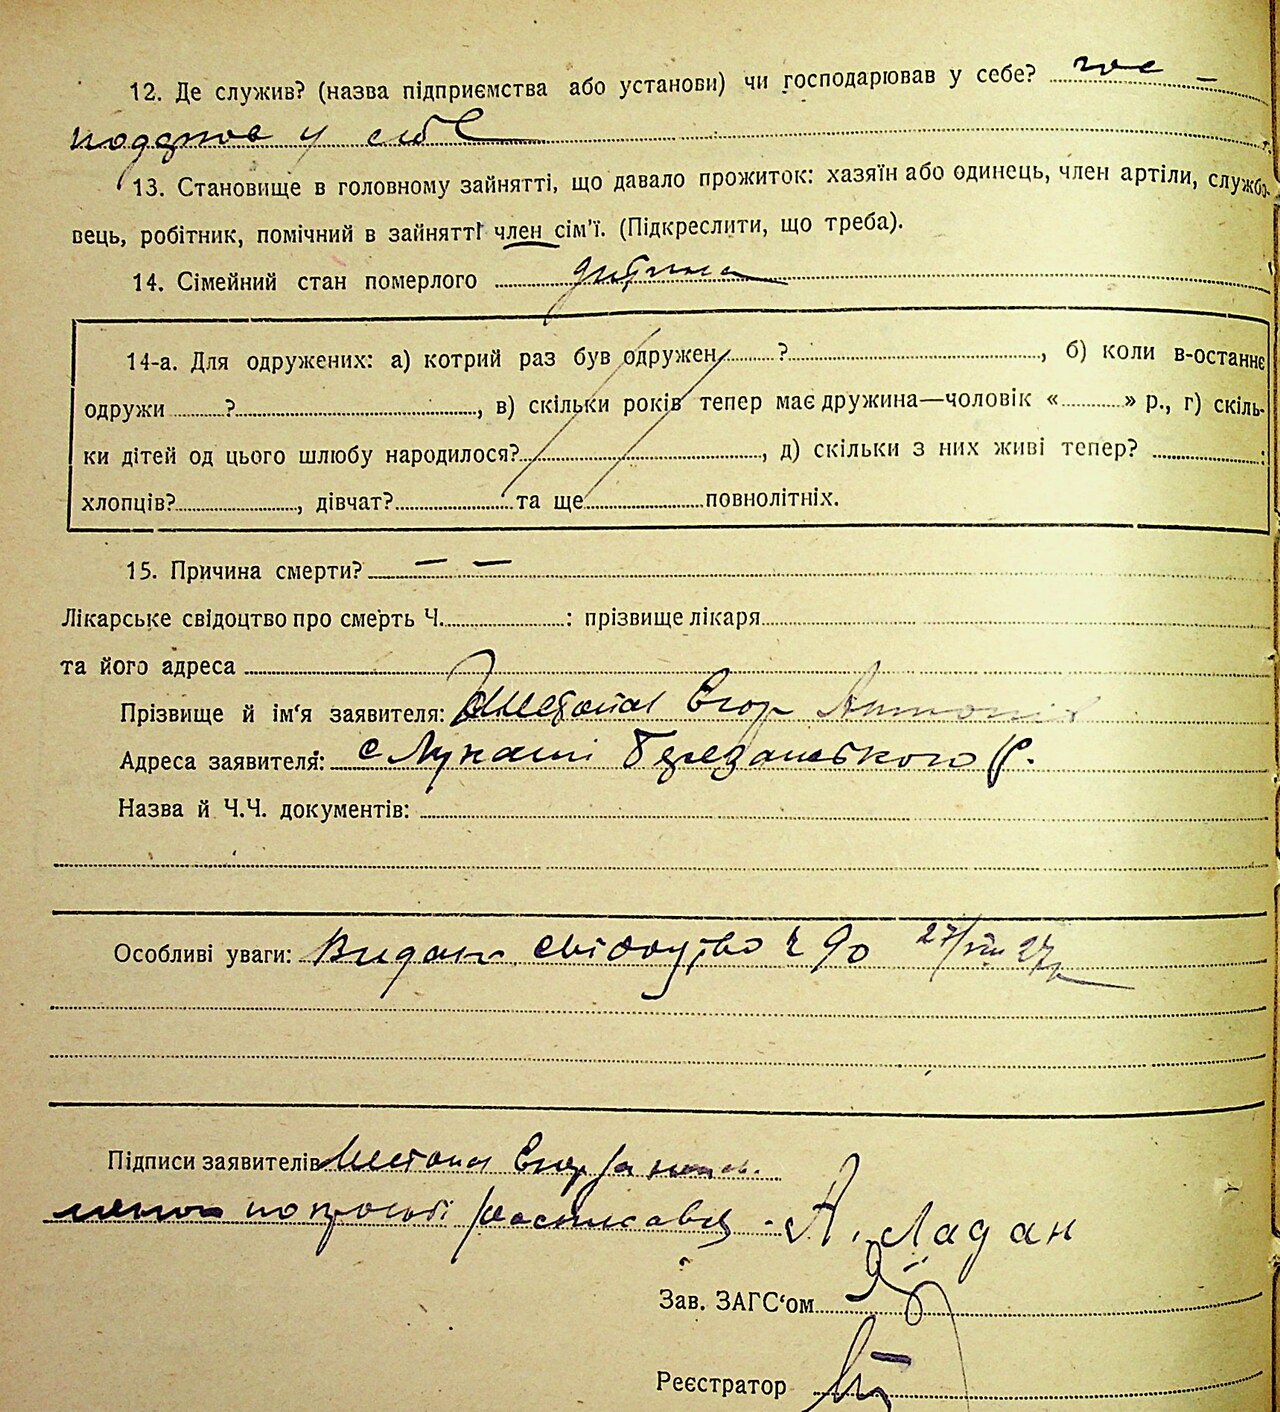 12. Де служив? (назва підприємства або установи) чи господарював у себе? гос –
подарюв у себе
13. Становище в головному зайнятті, що давало прожиток: хазяїн або одинець, член артіли, службо-
вець, робітник, помічний в зайнятті член сім'ї. (Підкреслити, що треба).
14. Сімейний стан померлого дитина
14-а. Для одружених: а) котрий раз був одружен ? , б) коли в-останнє
одружи ? , в) скільки років тепер має дружина—чоловік « » р., г) скіль-
ки дітей од цього шлюбу народилося? , д) скільки з них живі тепер? :
хлопців? , дівчат? та ще повнолітніх.
15. Причина смерти? — —
Лікарське свідоцтво про смерть Ч. : прізвище лікаря
та його адреса
Прізвище й ім'я заявителя: Єгор Антонів
Адреса заявителя: с Лукаші Березанського р.
Назва й Ч.Ч. документів:
Особливі уваги: Видано свідоцтво ч 90 27/VIII 27р
Підписи заявителів Єгор
по просьбі расписався - А. Ладан
Зав. ЗАГС'ом
Реєстратор